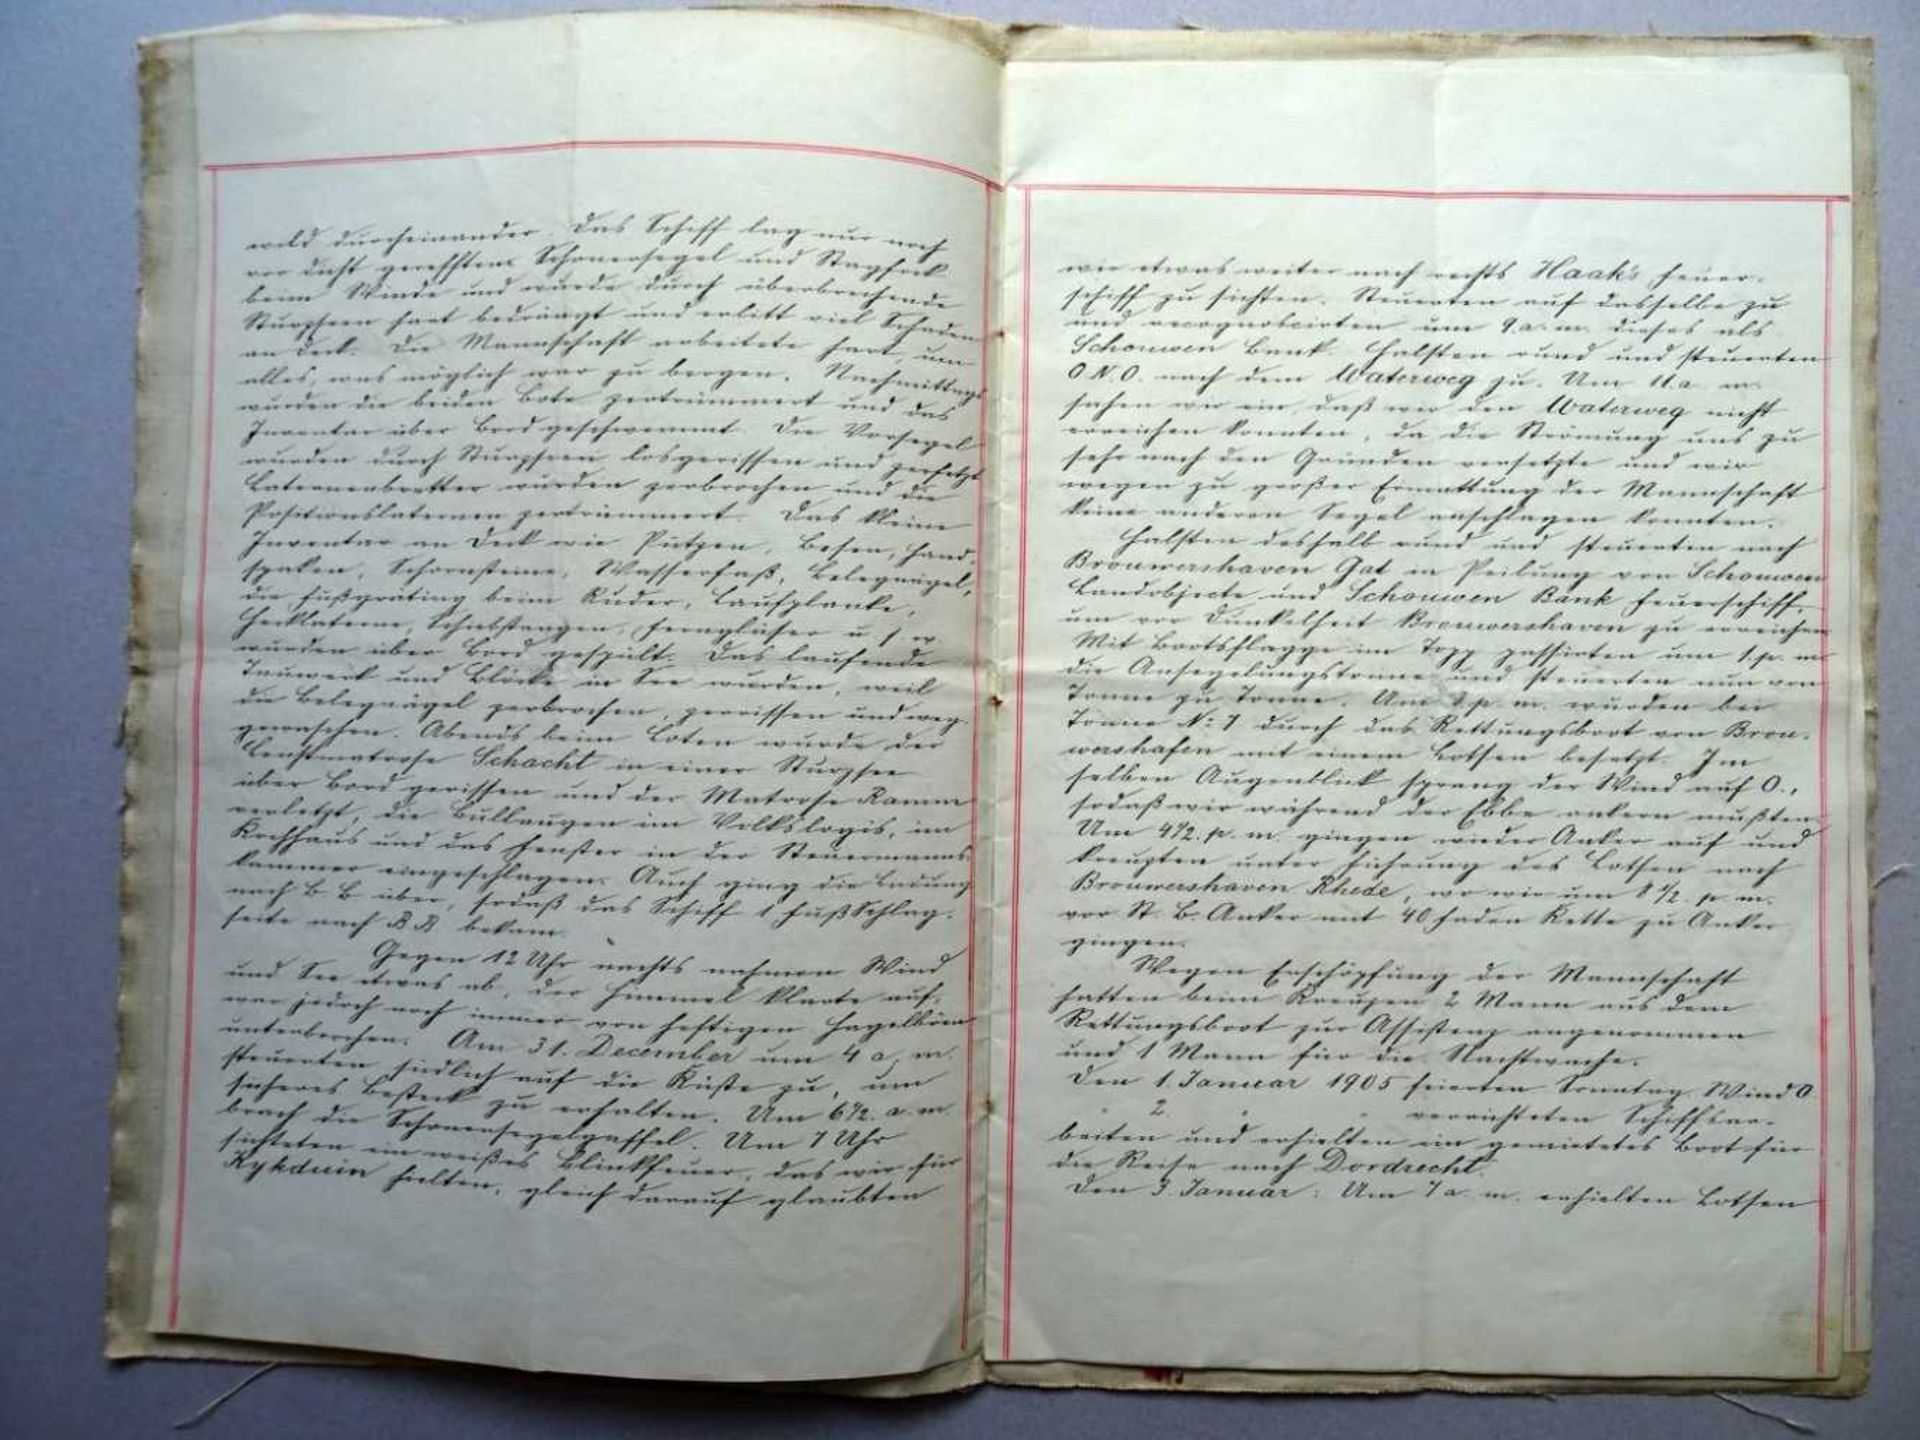 wild durcheinander. Das Schiff lag nur noch
vor dicht gerefftem Schonersegel und Stagfock
beim Winde und wurde durch überbrechende
Sturzseen hart bedrängt und erlitt viel Schaden
an Deck. Die Mannschaft arbeitete hart, um
alles, was möglich war zu bergen. Nachmittags
wurden die beiden Bote zertrümmert und das
Inventar über Bord geschwemmt. Die Vorsegel
wurden durch Sturzseen losgerissen und zerfetzt
Laternenbretter wurden zerbrochen und die
Positionslaternen zertrümmert. Das kleine
Inventar an Deck wie Pützen, Besen, Hand-
spaken, Schornsteine, Wasserfaß, Belegnägel,
die Fußgräting beim Ruder, Laufplanke,
Hecklaterne, Schiebstangen, Ferngläser u. s. w.
wurden über Bord gespült. Das laufende
Tauwerk und Blöcke in See wurden, weil
die Belegnägel zerbrochen, zerrissen und weg-
gewaschen. Abends beim Loten wurde der
Leichtmatrose Schacht in einer Sturzsee
über Bord gerissen und der Matrose Ramm
verletzt, die Bullaugen im Volkslogis, im
Kochhaus und das Fenster in der Steuermanns-
kammer eingeschlagen. Auch ging die Ladung
nach B. B. über, sodaß das Schiff 1 Fuß Schlag-
seite nach B. B. bekam.
Gegen 12 Uhr nachts nahmen Wind
und See etwas ab, der Himmel klarte auf,
war jedoch noch immer von heftigen Hagelböen
unterbrochen. Am 31. December um 4 a. m.
steuerten südlich auf die Küste zu, um
sicheres Besteck zu erhalten. Um 6½ a. m.
brach die Schonersegelgaffel. Um 7 Uhr
sichteten ein weißes Blinkfeuer, das wir für
Kykduin hielten, gleich darauf glaubten
wir etwas weiter nach rechts Haaks Feuer-
schiff zu sichten. Steuerten auf dasselbe zu
und recognoscirten um 9 a. m. dieses als
Schouwen Bank. Halsten rund und steuerten
O.N.O. nach dem Waterweg zu. Um 11 a. m.
sahen wir ein, daß wir den Waterweg nicht
erreichen konnten, da die Strömung uns zu
sehr nach den Gründen versetzte und wir
wegen zu großer Ermattung der Mannschaft
keine anderen Segel anschlagen konnten.
Halsten deshalb rund und steuerten nach
Brouwershaven Gat in Peilung von Schouwen
Landobjecte und Schouwen Bank Feuerschiff,
um vor Dunkelheit Brouwershaven zu erreichen
Mit Lootsflagge im Topp passirten um 1 p. m.
die Ansegelungstonne und steuerten nun von
Tonne zu Tonne. Um 2 p. m. wurden bei
Tonne No 7 durch das Rettungsboot von Brou-
wershafen mit einem Lotsen besetzt. Im
selben Augenblick sprang der Wind auf O.,
sodaß wir während der Ebbe ankern mußten.
Um 4½ p. m. gingen wieder Anker auf und
kreuzten unter Führung des Lotsen nach
Brouwershaven Rhede, wo wir um 8½ p. m.
vor St. B. Anker mit 40 Faden Kette zu Anker
gingen.
Wegen Erschöpfung der Mannschaft
hatten beim Kreuzen 2 Mann aus dem
Rettungsboot zur Assistenz angenommen
und 1 Mann für die Nachtwache.
Den 1. Januar 1905 feierten Sonntag. Wind O
" 2. " " verrichteten Schiffsar-
beiten und erhielten ein gemietetes Boot für
die Reise nach Dordrecht.
Den 3. Januar: Um 7 a. m. erhielten Lotsen